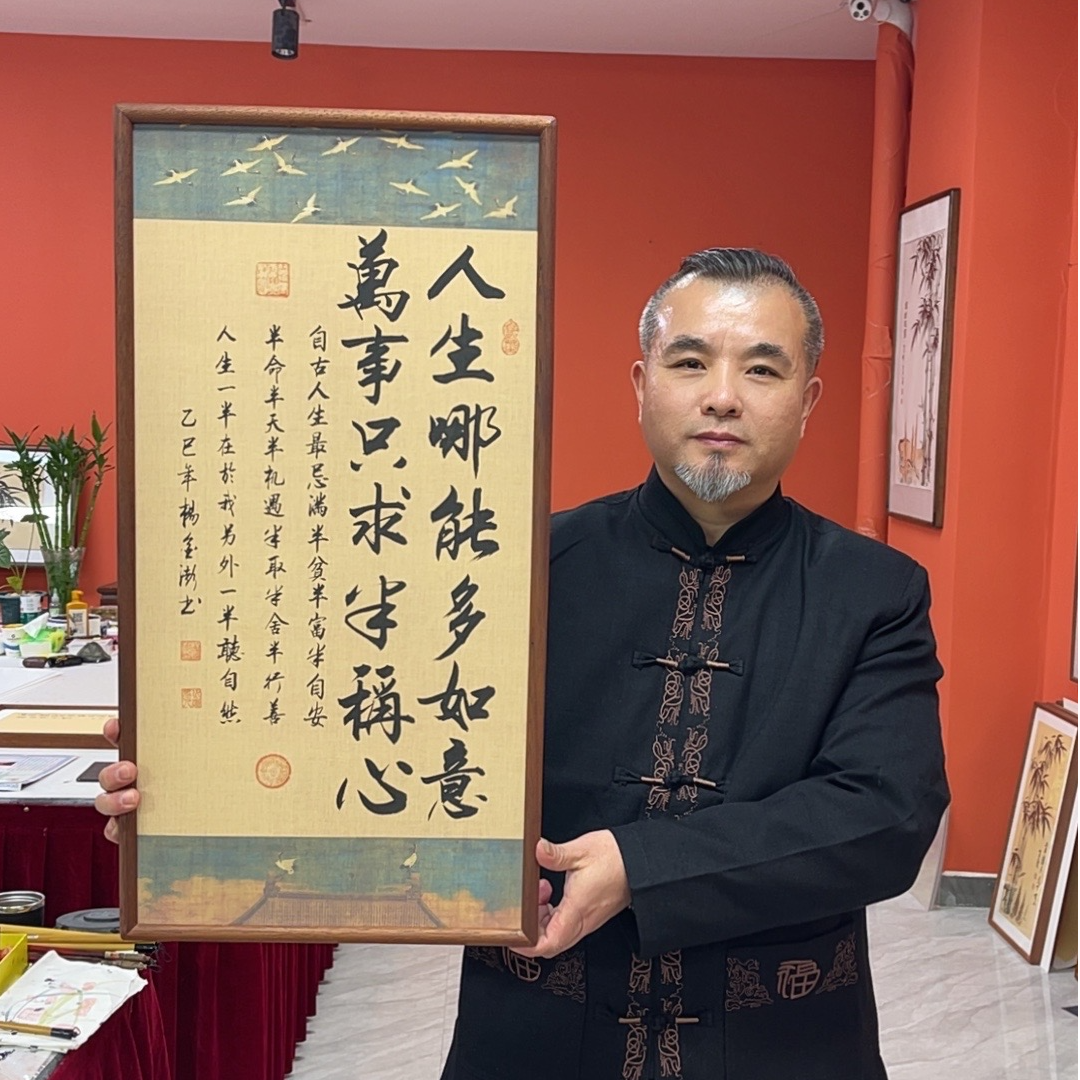 人生哪能多如意
萬事只求半稱心
自古人生最忌滿半貧半富半自安
半命半天半机遇半取半舍半行善
人生一半在於我另外一半聽自然
乙巳年楊金澍书
福